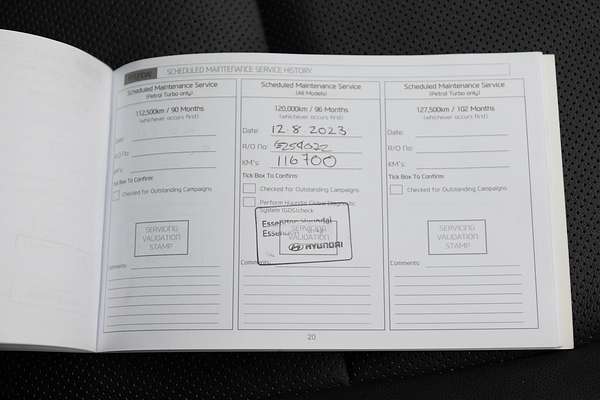 HYUNDAI SCHEDULED MAINTENANCE SERVICE HISTORY
Scheduled Maintenance Service
(Petrol Turbo only)
112,500km / 90 Months
(whichever occurs first)
Date:
R/O No:
KM's:
Tick Box To Confirm:
Checked for Outstanding Campaigns
SERVICING
VALIDATION
STAMP
Comments:
Scheduled Maintenance Service
(All Models)
120,000km / 96 Months
(whichever occurs first)
Date: 12 8 2023
R/O No:
KM's: 116700
Tick Box To Confirm:
Checked for Outstanding Campaigns
Perform Hyundai Global Diagnostic
System (GDS) check
Hyundai
SERVICING
HYUNDAI
Comments:
Scheduled Maintenance Service
(Petrol Turbo only)
127,500km / 102 Months
(whichever occurs first)
Date:
R/O No:
KM's:
Tick Box To Confirm:
Checked for Outstanding Campaigns
SERVICING
VALIDATION
STAMP
Comments:
20